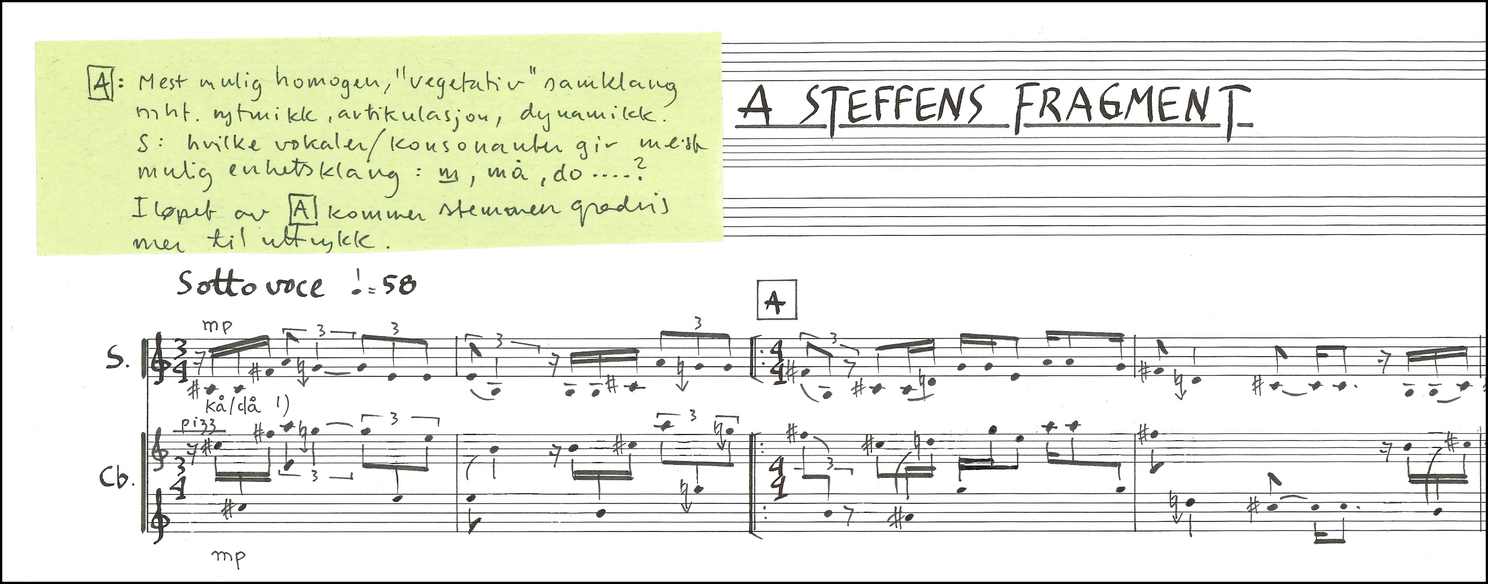 A: Mest mulig homogen, "vegetativ" samklang
mht. rytmikk, artikulasjon, dynamikk.
S: hvilke vokaler/konsonanter gir mest
mulig enhetsklang: m, må, do.....?
I løpet av A kommer stemmen gradvis
mer til uttrykk.
A STEFFENS FRAGMENT
Sotto voce ♩=58
A
mp
3 3 3 3 3
S. 3 4 4 4
kå/då 1)
pizz
3 3
Cb. 3 4 3 3 4 4
mp